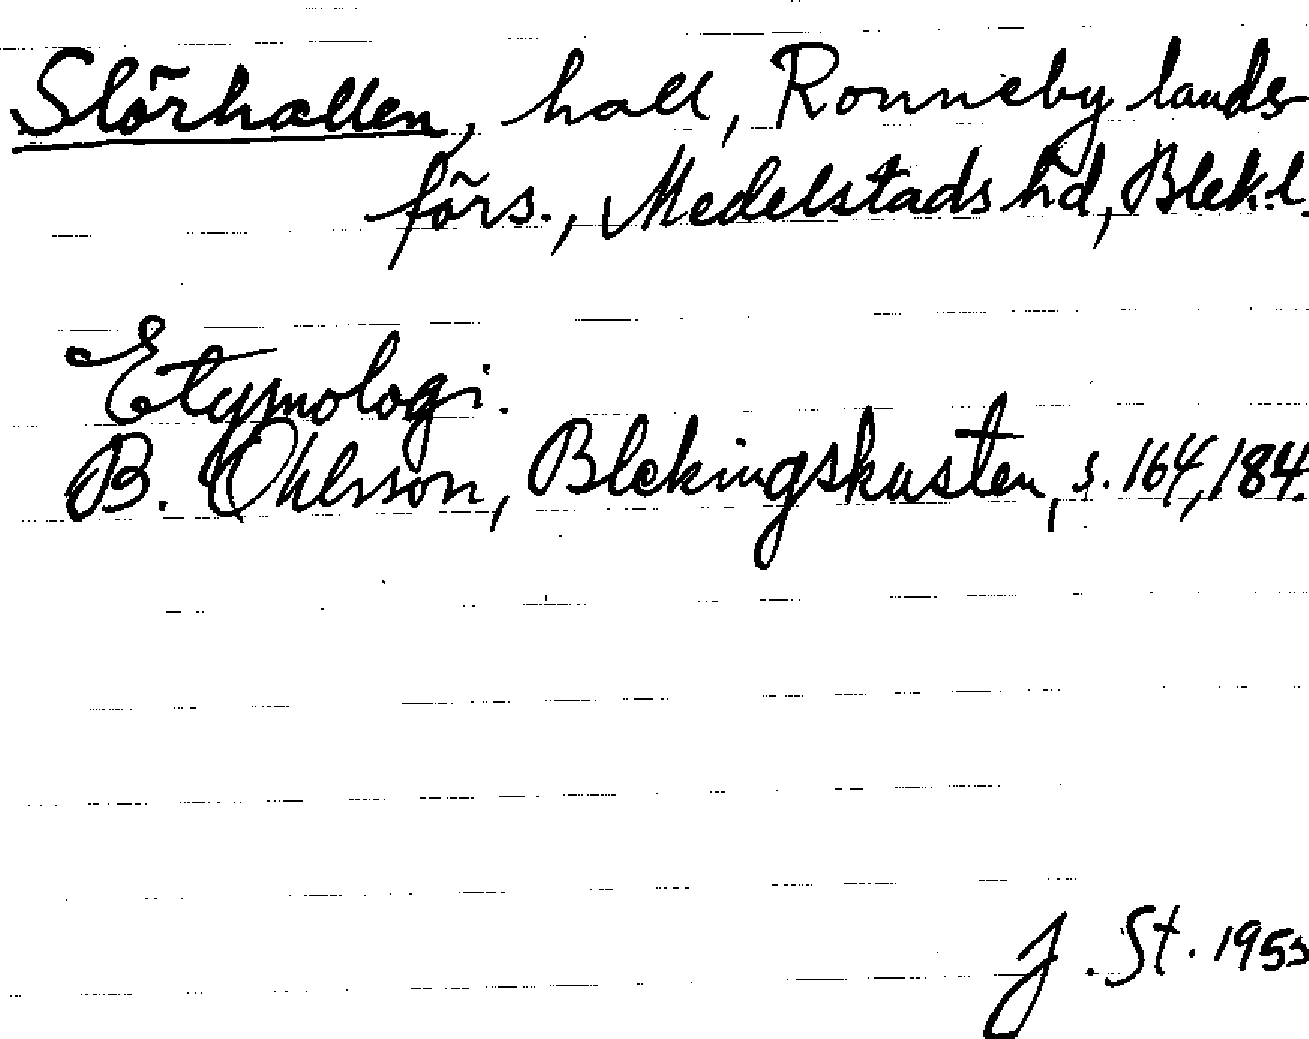 Slörhallen, hall, Ronneby lands-
förs., Medelstads hd, Blek.l.
Etymologi.
B. Ohlsson, Blekingskusten, s. 164, 184.
J. St. 1953